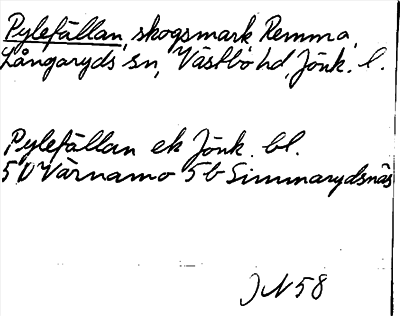 Pylefällan, skogsmark Remma,
Långaryds sn, Västbo hd, Jönk. l.
Pylefällan ek Jönk. bl.
5 D Värnamo 5b Simmarydsnäs
JN 58